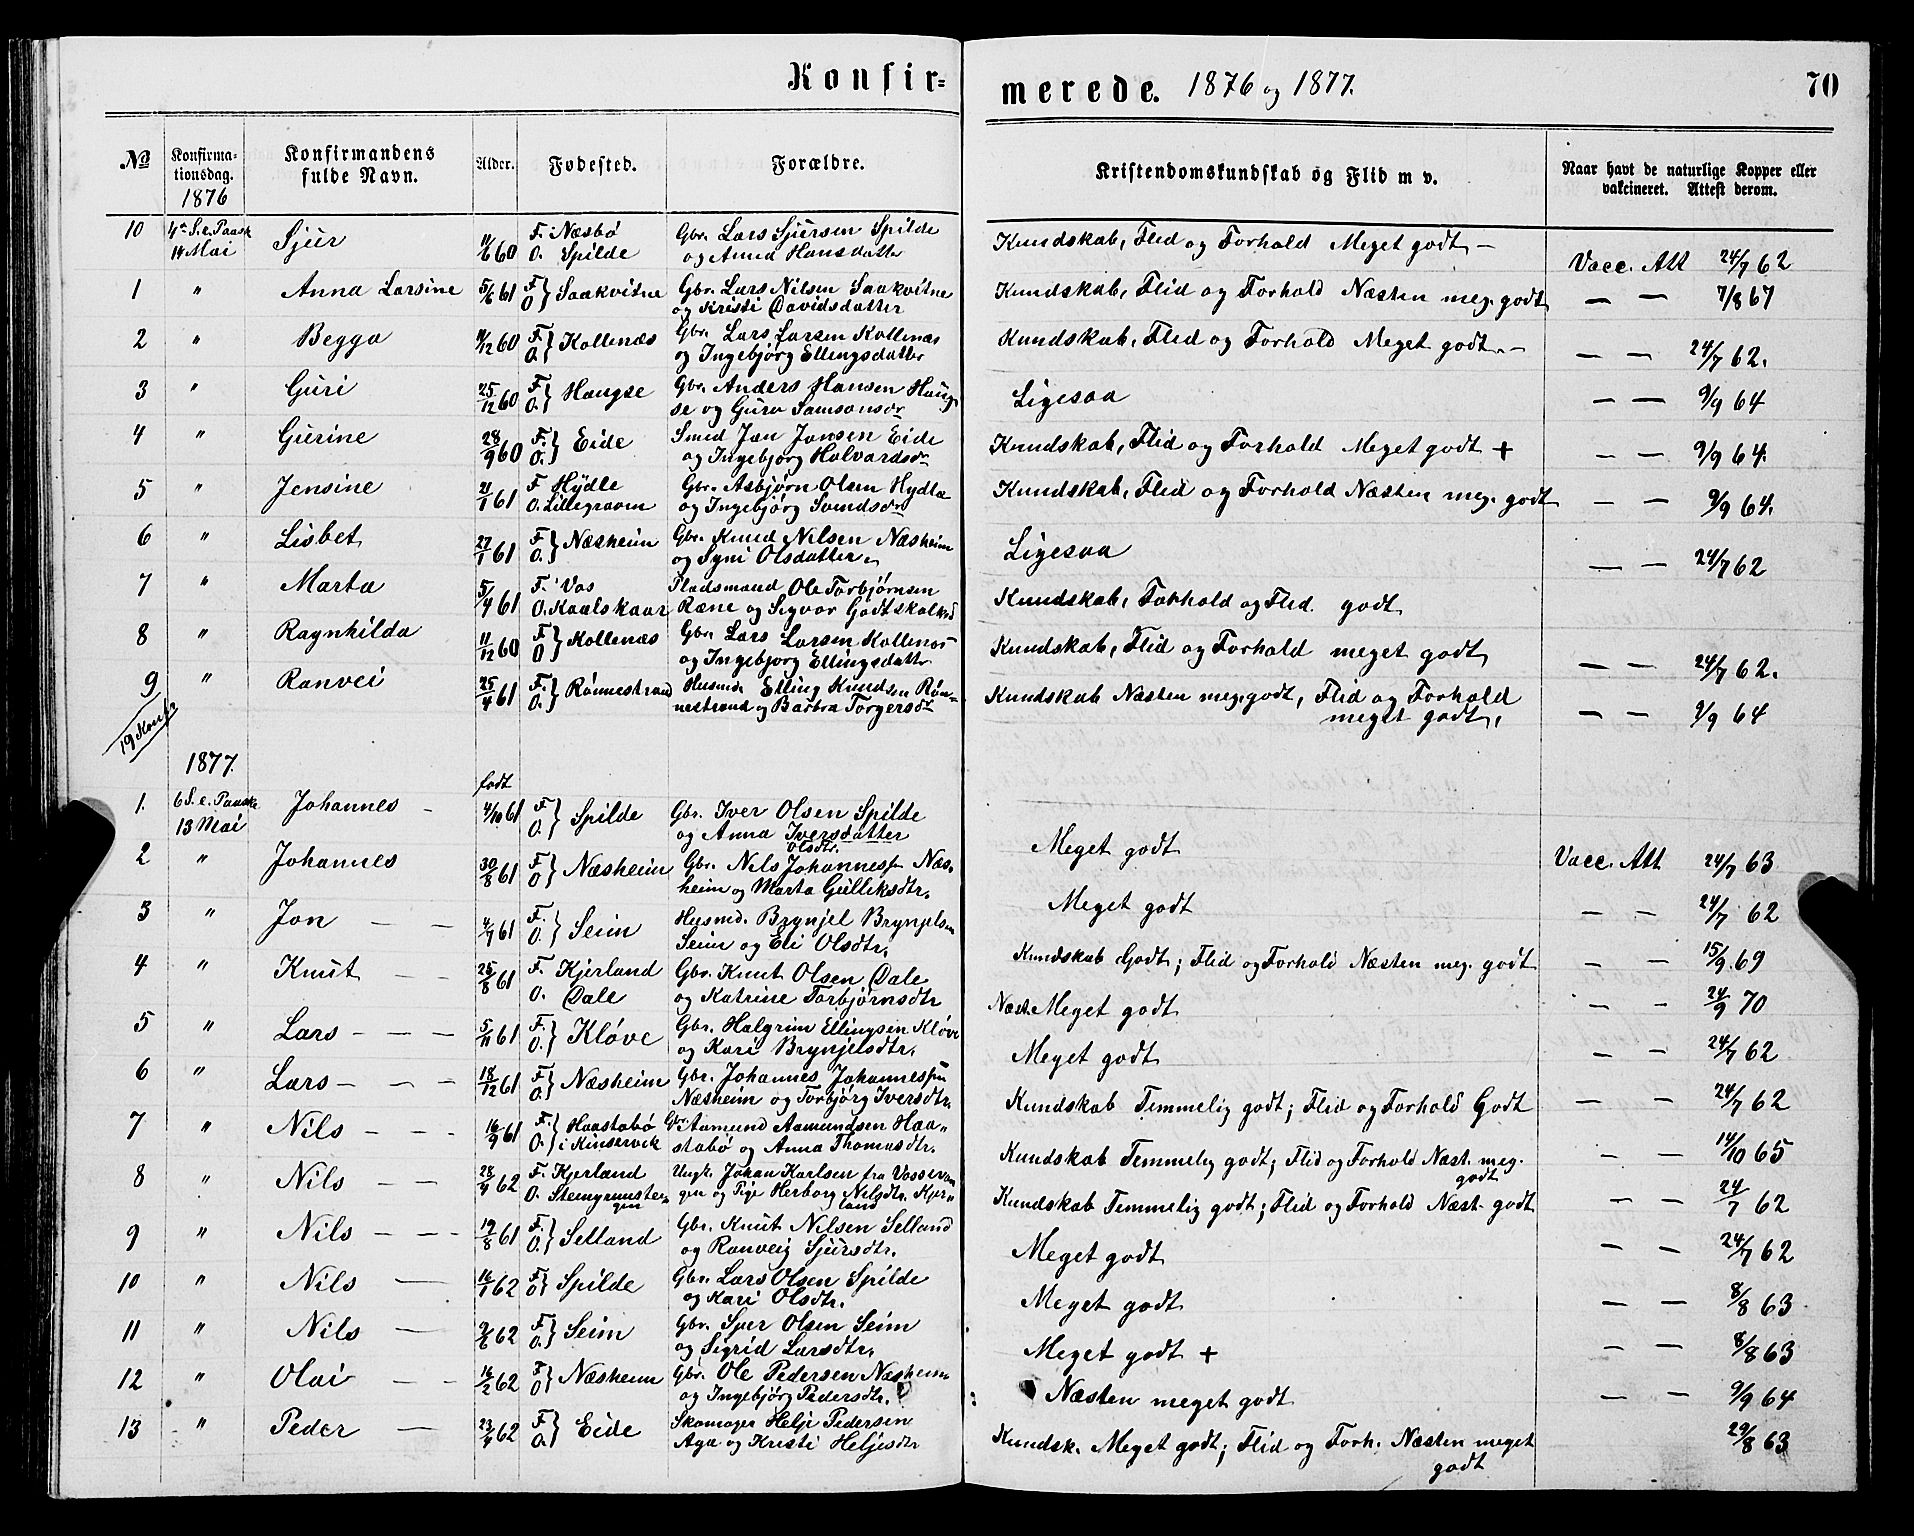 Konfir=
merede. 1876 og 1877.
70
No
Konfirma-
tionsdag.
1876
Konfirmandens
fulde Navn.
Alder.
Fødested.
Forældre.
Kristendomskundskab og Flid m v.
Naar havt de naturlige Kopper eller
vakcineret. Attest derom.
10 4de S. e. Paask Sjur 11/6 60 F. Næsbø Gbr. Lars Sjursen Spilde Kundskab, Flid og Forhold Meget godt —
14 Mai O. Spilde og Anna Hansdatter Vacc. Att 24/7 62
1 " Anna Larsine 5/6 61 F. O } Saakvitne Gbr. Lars Nilsen Saakvitne Kundskab, Flid og Forhold Næsten meg. godt — — 7/8 67
og Kristi Davidsdatter
2 " Begga 11/12 60 F. O. } Kollenæs Gbr. Lars Larsen Kollenæs Kundskab, Flid og Forhold Meget godt. — — — 24/7 62.
og Ingebjørg Ellingsdatter
3 " Guri 25/12 60 F. O. } Haugse Gbr. Anders Hansen Haug- Ligesaa — — 9/9 64
se og Guro Samsonsdr
4 " Gurine 28/9 60 F. O. } Eide Smed Jon Jonsen Eide Kundskab, Flid og Forhold Meget godt + — — 9/9 64.
og Ingebjørg Halvardsdr
5 " Jensine 21/1 61 F Hydle Gbr. Asbjørn Olsen Hydle Kundskab, Flid og Forhold Næsten meg. godt — — 9/9 64.
O. Lillegraven og Ingebjørg Svendsdr
6 " Lisbet 27/1 61 F. O. } Næsheim Gbr. Knud Nilsen Næsheim Ligesaa — — 24/7 62
og Syni Olsdatter
7 " Marta 5/4 61 F. Vos Pladsmand Ole Torbjørnsen Kundskab, Forhold og Flid. godt
O. Kaalskaar Ræne og Sigvor Godtskalksd
8 " Ragnhilda 11/12 60 F O } Kollenæs Gbr. Lars Larsen Kollenæs Kundskab, Flid og Forhold meget godt — — 24/7 62.
og Ingebjørg Ellingsdatter
9 " Ranvei 25/4 61 F. O. } Rönnestrand Husmd. Elling Knudsen Rön- Kundskab Næsten meg. godt, Flid og Forhold
nestrand og Barbra Torgersdr meget godt, — — 9/9 64
19 Konfr
1877.
født
1. 6 S. e. Paaske Johannes — 4/10 61 F O. } Spilde Gbr. Iver Olsen Spilde
13 Mai og Anna Iversdatter Meget godt Vacc. Att 24/7 63
Olsdtr.
2 " Johannes 30/8 61 F O } Næsheim Gbr. Nils Johannesen Næs-
heim og Marta Gulliksdtr. Meget godt — — 24/7 62
3 " Jon — — 4/7 61 F. O. } Seim Husmd. Brynjel Brynjelsen
Seim og Eli Olsdtr. Kundskab Godt; Flid og Forhold Næsten meg. godt — — 15/9 69
4 " Knut — — 25/8 61 F. Kjerland Gbr. Knut Olsen Dale
O. Dale og Katrine Torbjørnsdtr Næst. Meget godt — — 24/9 70
5 " Lars — — — 5/11 61 F. O. } Kløve Gbr. Halgrim Ellingsen Kløve
og Kari Brynjelsdtr. Meget godt — — 24/7 62
6 " Lars — — — 18/12 61 F O. } Næsheim Gbr. Johannes Johannesen
Næsheim og Torbjørg Iversdtr. Kundskab Temmelig godt; Flid og Forhold Godt — — 24/7 62
7 " Nils — — — 16/9 61 F. O. } Haastabø Gbr. Aamund Aamundsen Haa-
i Kinservik stabø og Anna Thomasdtr. Kundskab Temmelig godt; Flid og Forhold Næst. meg. — — 14/10 65
godt
8 " Nils — — 28/4 62 F. Kjerland Ungk. Johan Karlsen fra Vossevan-
O. Steingrunsten gen og Pige Herborg Nilsdtr. Kjer- Kundskab Temmelig godt; Flid og Forhold Næst. godt — — 24/7 62
gen land
9 " Nils — — — 19/8 61 F O. } Selland Gbr. Knut Nilsen Selland
og Ranveig Sjursdtr. Meget godt — — 24/7 62
10 " Nils — 16/1 62 F O } Spilde Gbr. Lars Olsen Spilde
og Kari Olsdtr. Meget godt — — 8/8 63
11 " Nils — 2/6 62 F O. } Seim Gbr. Sper Olsen Seim
og Sigrid Larsdtr. Meget godt + — — 8/8 63
12 " Olai — — 16/2 62 F O } Næsheim Gbr. Ole Pedersen Næsheim
og Ingebjørg Pedersdtr. Næsten meget godt — — 9/9 64
13 " Peder — 23/4 62 F O. } Eide Skomager Helje Pedersen
Aga og Kristi Heljesdtr Kundsk. Meget godt; Flid og Forh. Næsten meget 29/8 63
godt